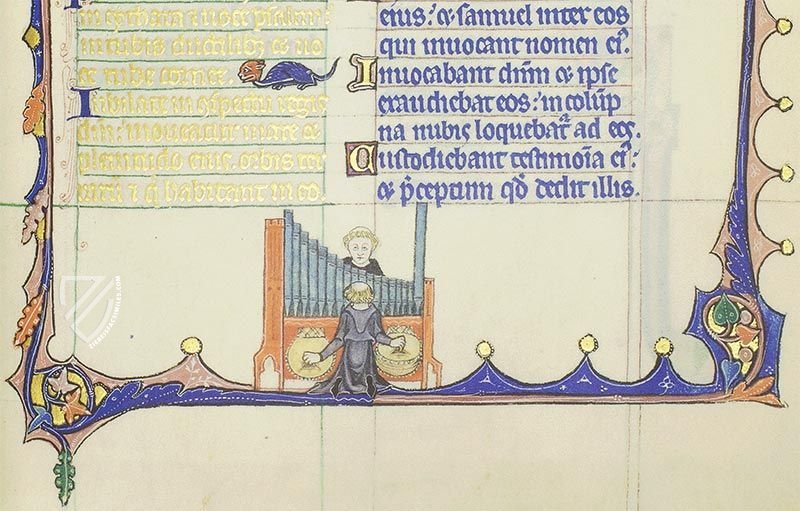 in cythara et uoce psalmi.
in tubis ductilibz et uo
ce tube cornee.
Iubilate in
dni: moueatur mare et
plenitudo eius: orbis ter
et q̇ habitant in eo.
eius: et samuel inter eos
qui inuocant nomen ei᷒.
Inuocabant dnm et ipse
exaudiebat eos: in colūp
na nubis loquebat᷑ ad eos.
Custodiebant testimoīa ei᷒:
et p̄ceptum qd̄ dedit illis.
ZIEREISFACSIMILES.COM